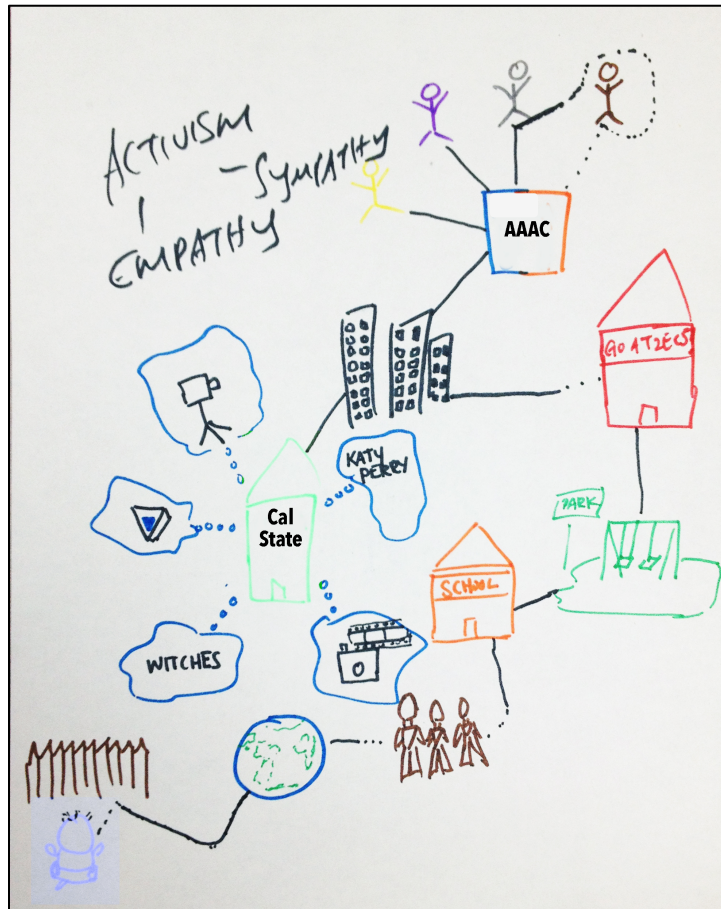 ACTIVISM
- SYMPATHY
EMPATHY
AAAC
GO ATZECS
KATY
PERRY
Cal
State
PARK
SCHOOL
WITCHES